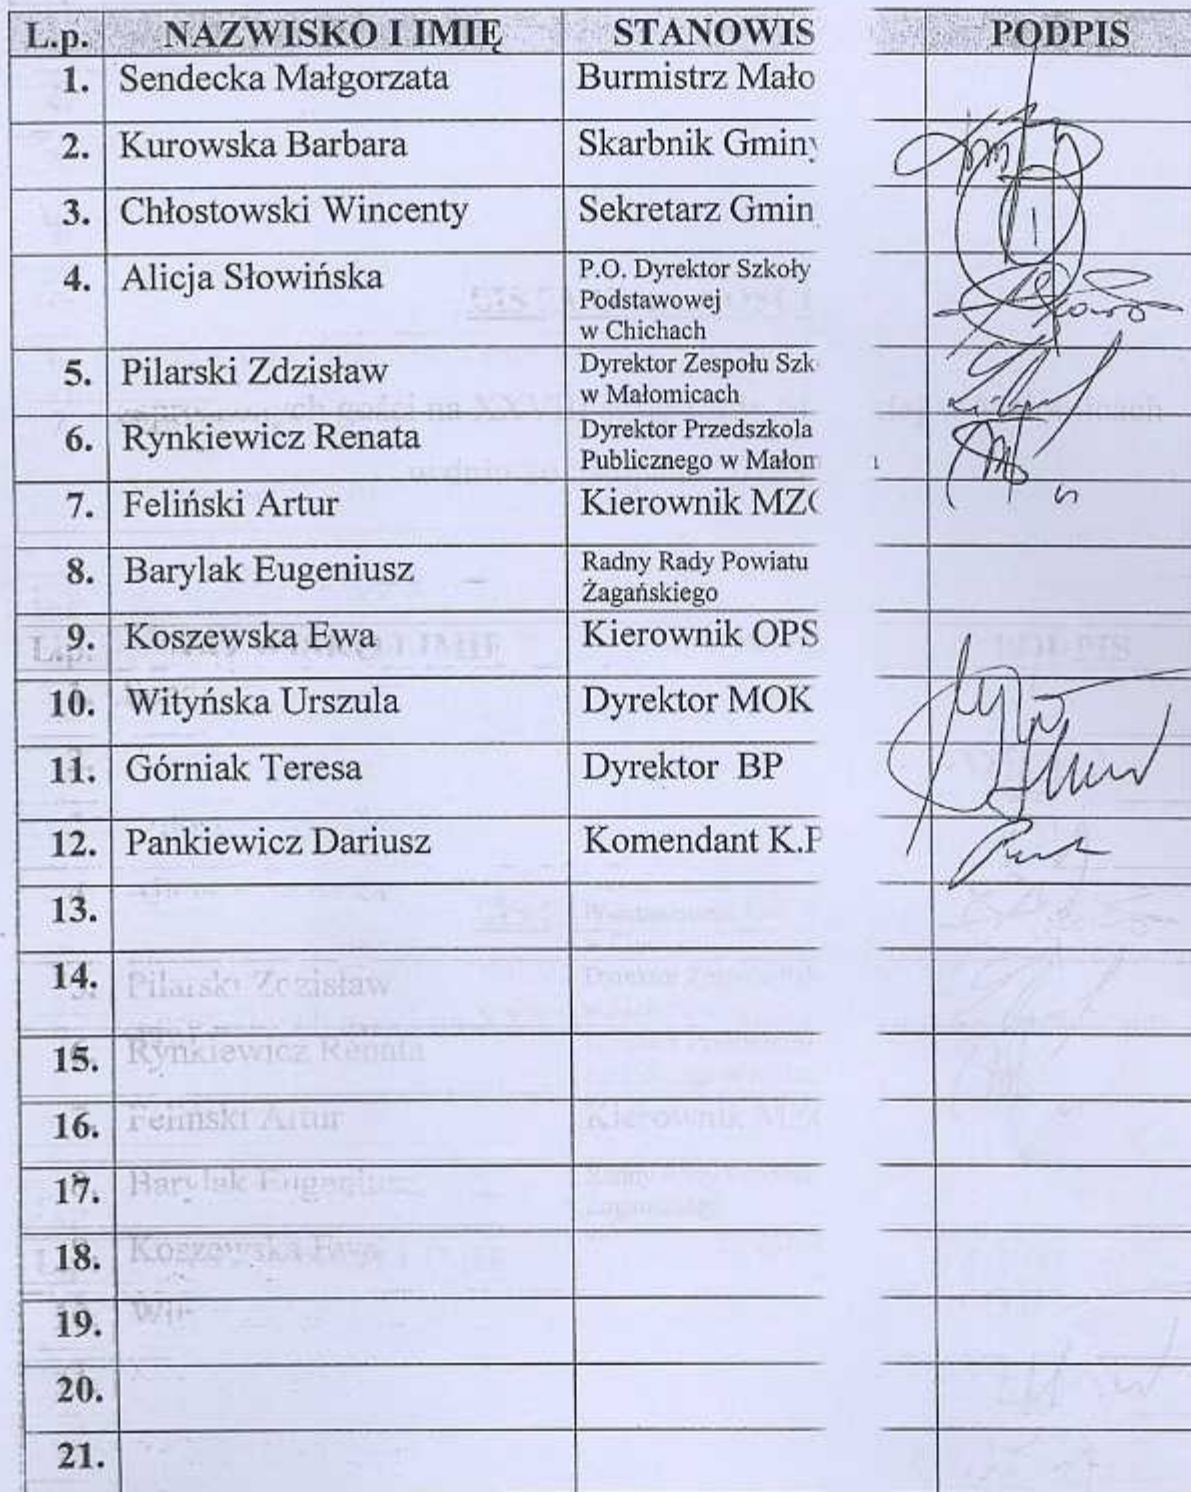 L.p. NAZWISKO I IMIĘ STANOWIS PODPIS
1. Sendecka Małgorzata Burmistrz Mało
2. Kurowska Barbara Skarbnik Gminy
3. Chłostowski Wincenty Sekretarz Gmin
4. Alicja Słowińska P.O. Dyrektor Szkoły
Podstawowej
w Chichach
5. Pilarski Zdzisław Dyrektor Zespołu Szk
w Małomicach
6. Rynkiewicz Renata Dyrektor Przedszkola
Publicznego w Małom
7. Feliński Artur Kierownik MZ
8. Barylak Eugeniusz Radny Rady Powiatu
Żagańskiego
9. Koszewska Ewa Kierownik OPS
10. Wityńska Urszula Dyrektor MOK
11. Górniak Teresa Dyrektor BP
12. Pankiewicz Dariusz Komendant K.P
13.
14.
15.
16.
17.
18.
19.
20.
21.